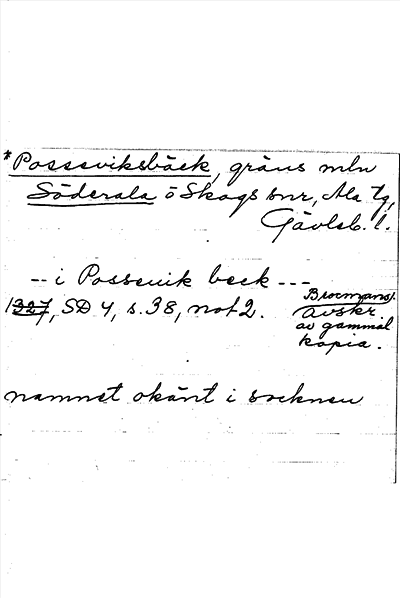 *Possviksbäck, gräns mln
Söderala o Skogs snr, Ala tg,
Gävleb. l.
-- i Possevik beck ---
1327, SD 4, s. 38, not 2.
Brocmans
avskr
av gammal
kopia.
namnet okänt i socknen